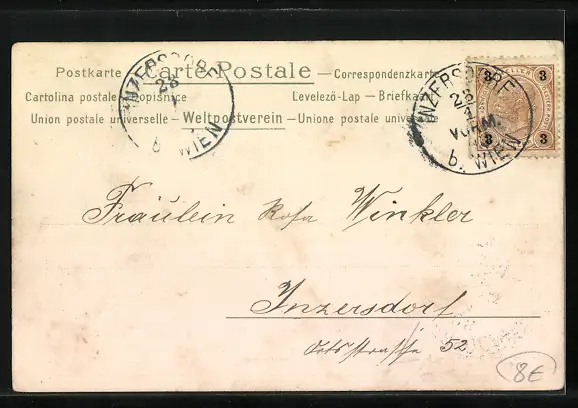 Postkarte — Carte Postale — Correspondenzkarte
Cartolina postale — Dopisnice Levelezö-Lap — Briefkaart
Union postale universelle — Weltpostverein — Unione postale universale
INZERSDORF
28
1
b. WIEN
INZERSDORF
28
1
VORM.
b. WIEN
3 HELLER 3
3 3
Fräulein Rosa Winkler
Inzersdorf
Ortsstrasse 52
8€